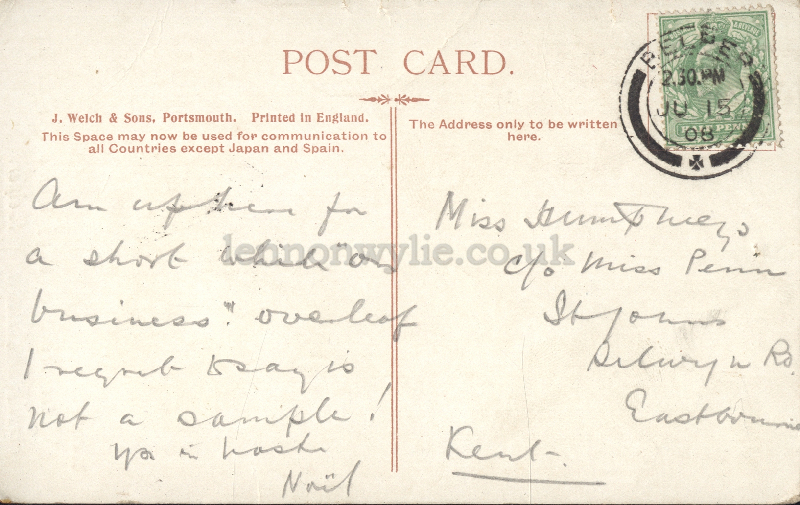 POST CARD.
J. Welch & Sons, Portsmouth. Printed in England.
This Space may now be used for communication to
all Countries except Japan and Spain.
The Address only to be written
here.
2.30.PM
JU 15
08
Am up here for
a short while "on
business." overleaf
I regret to say is
not a sample!
Yrs in haste
Noël
Miss Humphreys
c/o Miss Penn
St Johns
Selwyn Rd.
Eastbourne
Kent.
lennonwylie.co.uk